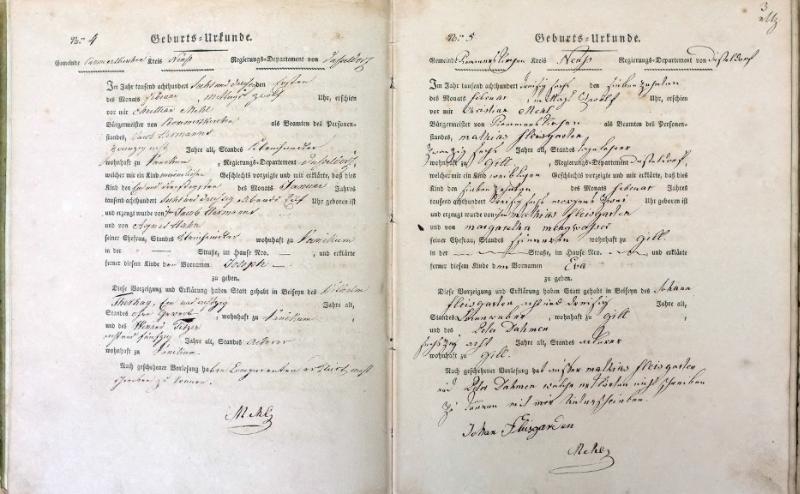 Nro. 4 Geburts-Urkunde.
Gemeinde Rommerskirchen Kreis Neuß Regierungs-Departement von Düsseldorf
Im Jahr tausend achthundert Sechs und dreißig den Ersten
des Monats Februar Mittags zwölf Uhr, erschien
vor mir Christian Mehl
Bürgermeister von Rommerskirchen als Beamten des Personen-
standes, Jacob Hermanns
Jahre alt, Standes Steinhauer
wohnhaft zu Vanikum, Regierungs-Departement Düsseldorf,
welcher mir ein Kind männlichen Geschlechts vorzeigte und mir erklärte, daß dies
Kind den Ein und dreißigsten des Monats Januar Jahrs
tausend achthundert Sechs und dreißig Abends Uhr geboren ist
und erzeugt wurde von Jacob Hermanns
und von Agnes Hahn
seiner Ehefrau, Standes wohnhaft zu Vanikum
in der — Straße, im Hause Nro. — , und erklärte
ferner diesem Kinde den Vornamen Joseph
zu geben.
Diese Vorzeigung und Erklärung haben Statt gehabt in Beiseyn des Wilhelm
Jahre alt,
Standes ohne Gewerb, wohnhaft zu Vanikum
und des
Jahre alt, Standes Ackerer
wohnhaft zu Vanikum
Nach geschehener Vorlesung haben Comparenten erklärt, nicht
schreiben zu können.
Mehl
3
Nro. 5 Geburts-Urkunde.
Gemeinde Rommerskirchen Kreis Neuß Regierungs-Departement von Düsseldorf
Im Jahr tausend achthundert dreißig sechs den siebenzehnten
des Monats Februar Mittags zwölf Uhr, erschien
vor mir Christian Mehl
Bürgermeister von Rommerskirchen als Beamten des Personen-
standes, mathias fleisgarten
sechs Jahre alt, Standes tagelöhner
wohnhaft zu Gill, Regierungs-Departement Düsseldorf,
welcher mir ein Kind weiblichen Geschlechts vorzeigte und mir erklärte, daß dies
Kind den siebenzehnten des Monats Februar Jahrs
tausend achthundert dreißig sechs morgens Uhr geboren ist
und erzeugt wurde von mathias fleisgarten
und von margaretha
seiner Ehefrau, Standes wohnhaft zu Gill
in der — Straße, im Hause Nro. — , und erklärte
ferner diesem Kinde den Vornamen Eva
zu geben.
Diese Vorzeigung und Erklärung haben Statt gehabt in Beiseyn des Johann
fleisgarten, acht und dreißig Jahre alt,
Standes, wohnhaft zu Gill
und des Peter Dahmen
acht Jahre alt, Standes ackerer
wohnhaft zu Gill.
Nach geschehener Vorlesung mathias fleisgarten
und Peter Dahmen welche erklärten nicht schreiben
zu können mit mir unterschrieben.
Johan Fleisgarden
Mehl